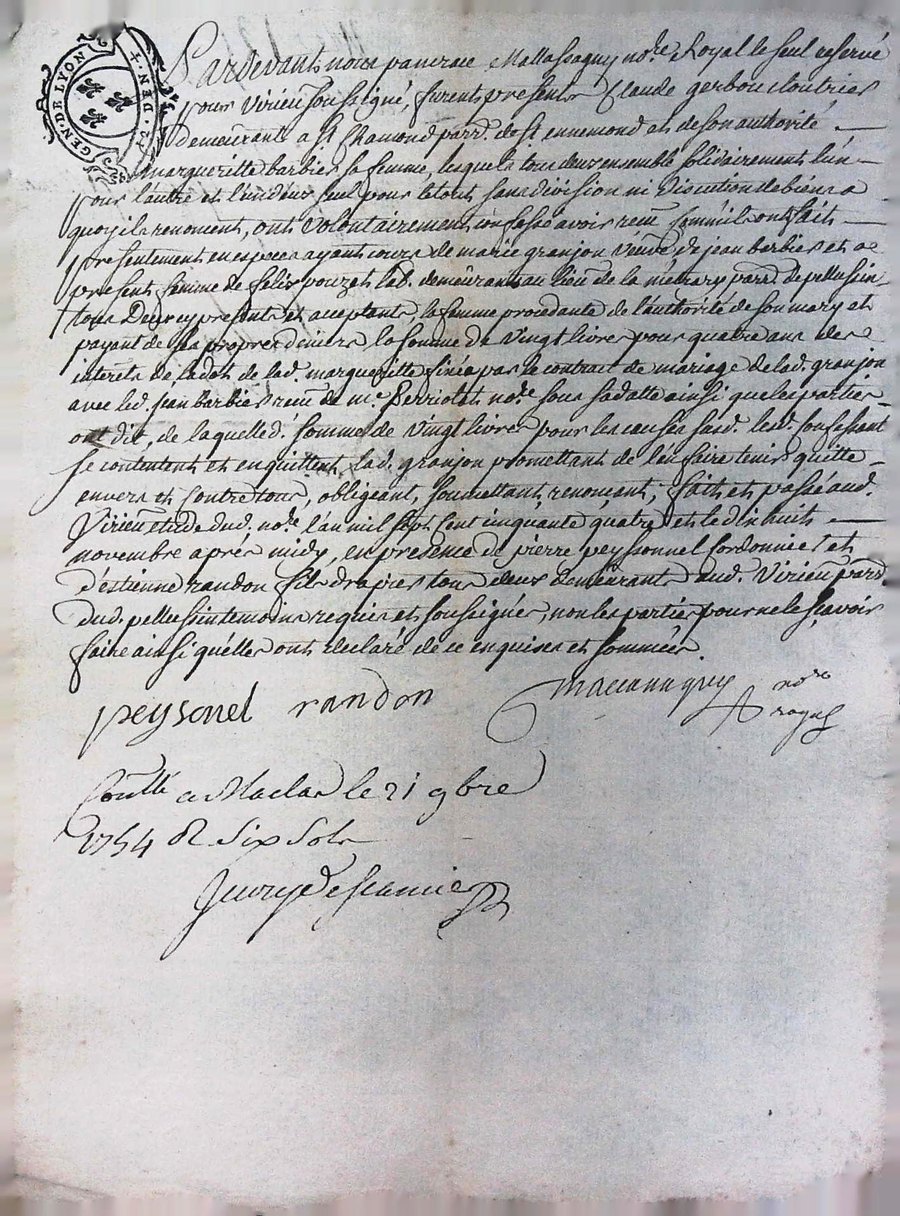 GEN. DE LYON
Pardevant nous pancrace Mallassagny no.re Royal le seul reservé
pour Virieu soussigné, furent presents Claude gerbou cloutrier
demeurant a St Chamond parr. de St. ennemond et de son authorité
margueritte barbier sa femme, lesquels tous deux ensemble solidairement l'un
pour l'autre et l'un d'eux seul pour le tout sans division ni discution de biens a
quoy ils renoncent, ont volontairement confessé avoir receu comme ils ont fait
presentement en especes ayant cours de marie granjon veuve de jean barbier et a
present femme de felix pouzet lab. demeurant au lieu de la parr. de pellussin
tous Deux cy presents et acceptants, la femme procedante de l'authorité de son mary et
payant de ses propres deniers la somme de vingt livres pour quatre ans des
interets de la dot de lad. margueritte par le contract de mariage de lad. granjon
avec led. jean barbier receu de me. Perriolat no.re sous sa datte ainsi que les parties
ont dit, de laquelle d. somme de vingt livres pour les causes susd. les d. confessant
se contentent et en quittent lad. granjon promettant de l'en faire tenir quitte
envers et contre tous, obligeant, soumettant, renonçant, fait et passé aud.
Virieu etude dud. no.re l'an mil sept cent cinquante quatre et le dix huit
novembre après midy, en presence de pierre peyssonnel cordonnier et
d'estienne randon fils drapier tous deux demeurant aud. Virieu parr.
dud. pellussin temoins requis et soussignés, non les parties pour ne le sçavoir
faire ainsi qu'elles ont declaré de ce enquises et sommées.
peysonel randon
no.re
royal
Con.llé a Maclas le 21 9bre
1754 R. six sols